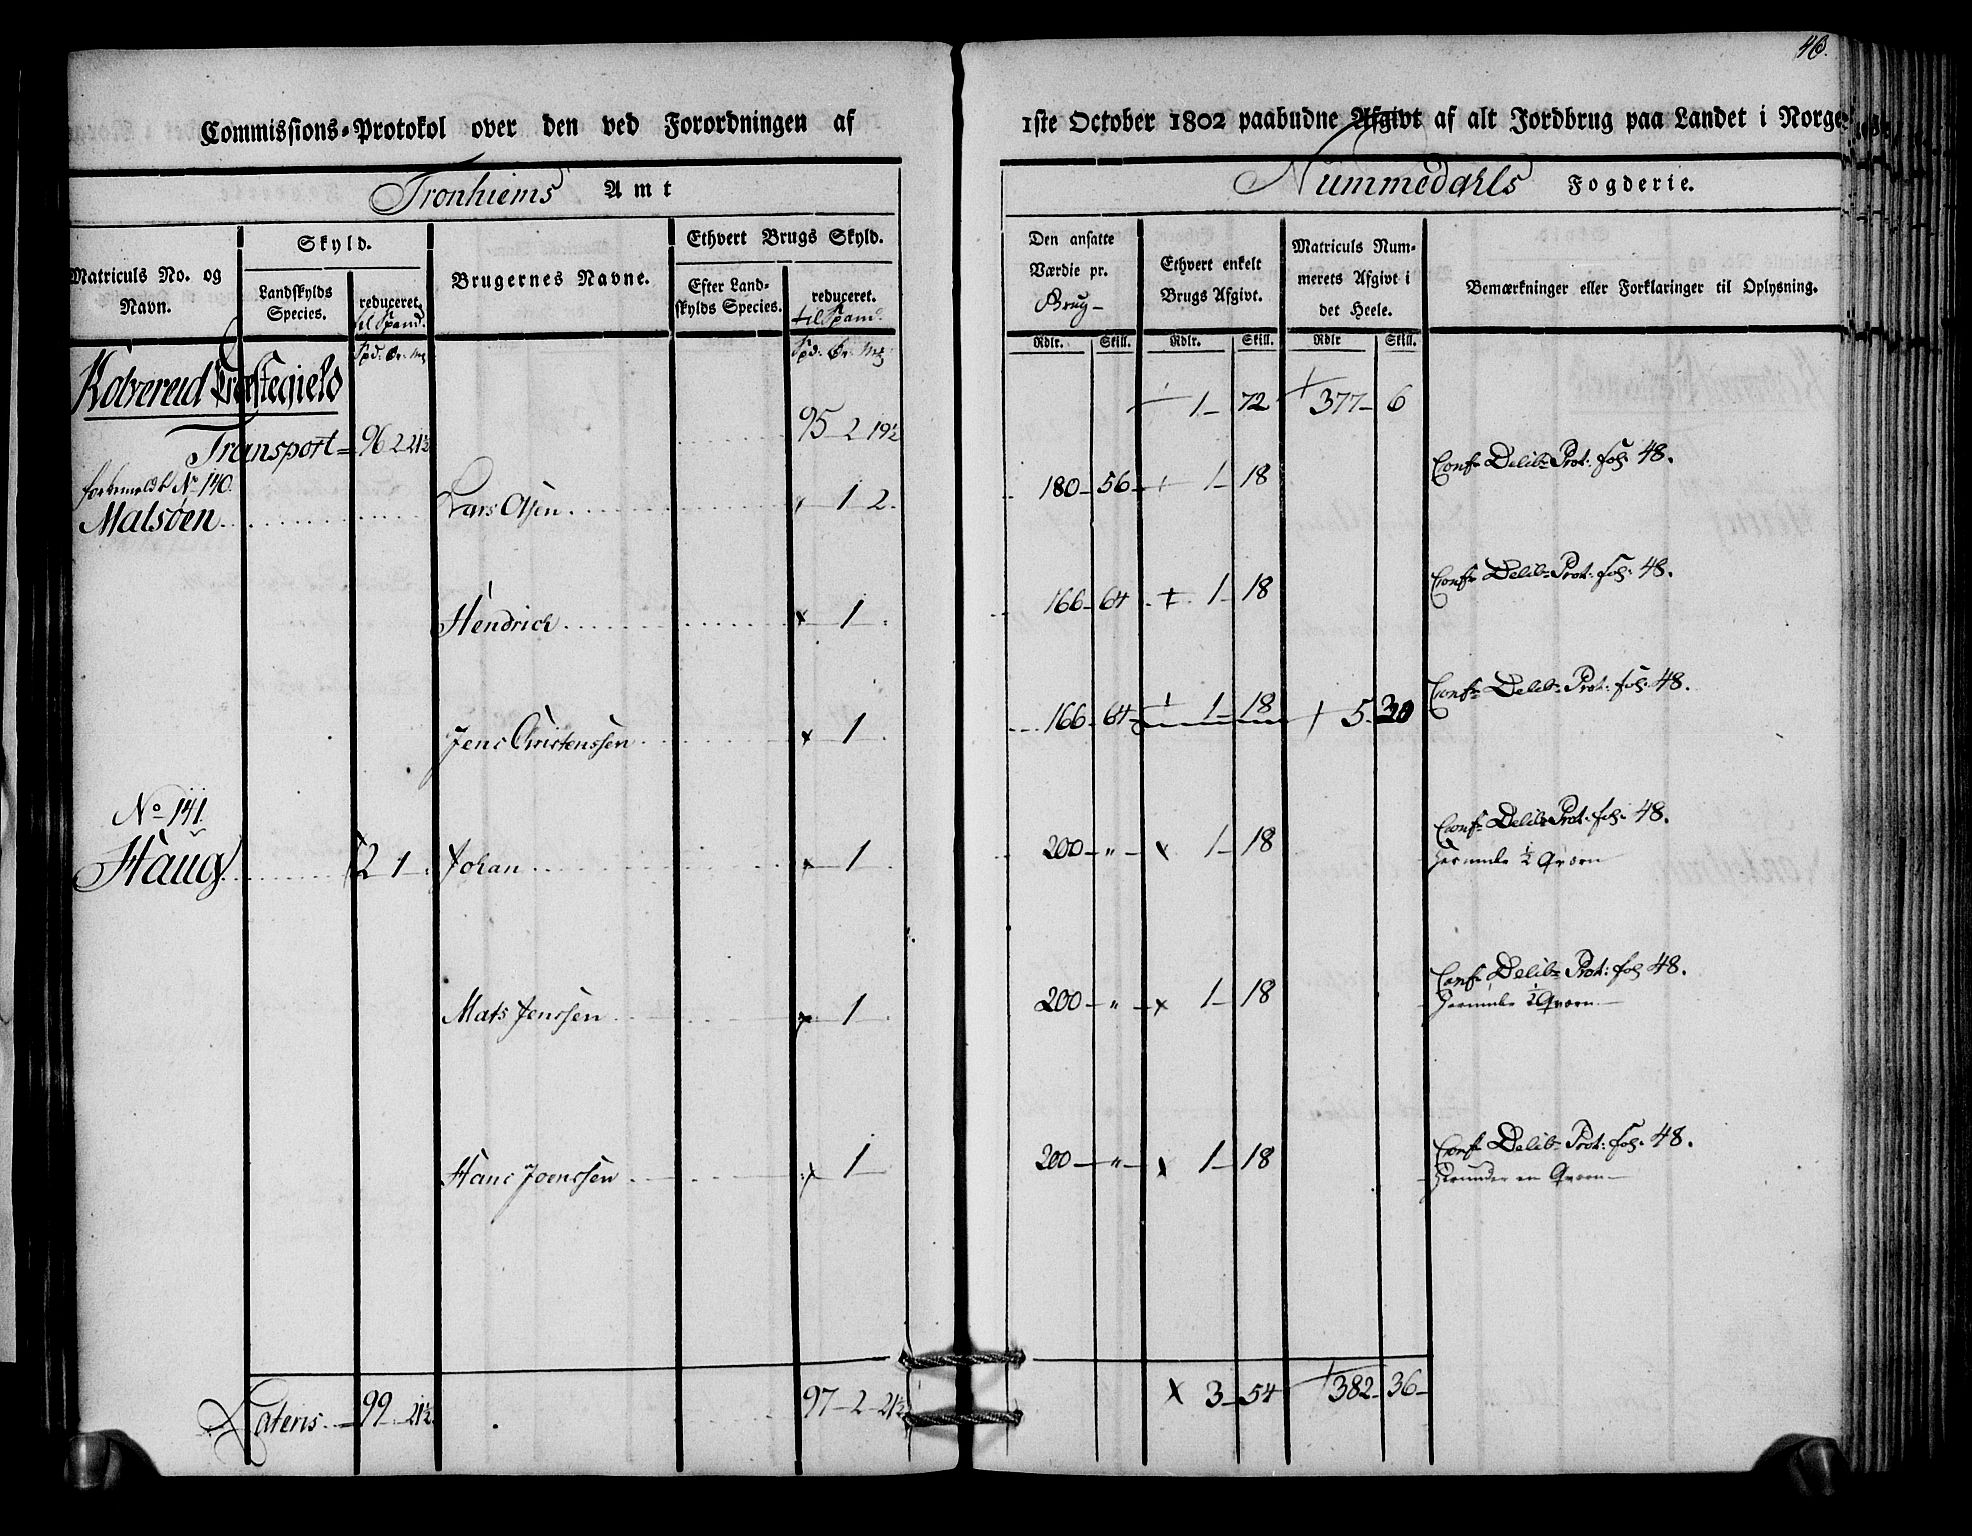 46.
Commissions-Protokol over den ved Forordningen af 1ste October 1802 paabudne Afgivt af alt Jordbrug paa Landet i Norge.
Tronhiems Amt
Nummedahls Fogderie.
Matriculs No. og Navn.
Skyld.
Landskylds Species.
reduceret. til Spand.
Brugernes Navne.
Ethvert Brugs Skyld.
Efter Landskylds Species.
reduceret. til Spand.
Den ansatte Værdie pr. Brug-
Ethvert enkelt Brugs Afgivt.
Matriculs Nummerets Afgivt i det Heele.
Bemærkninger eller Forklaringer til Oplysning.
Spd. Ør. Mg
Spd. Ør. Mg
Rdlr. Skill. Rdlr. Skill. Rdlr Skill.
Kolvereid Præstegield
Transport 96 2 21½ 95 2 19½ 1 72 377 6
No 140.
Malsöen Lars Olsen 1 2. 180 56 1 18 Confr Delib: Prot: fol: 48.
Hendrich 1 166 64 1 18 Confr Delib: Prot: fol: 48.
Jens Christenssen 1 166 64 1 18 5 30 Confr Delib: Prot: fol: 48.
No 141.
Haug 2 1 Johan 1 200 " 1 18 Confr Delib: Prot: fol: 48.
½ Qværn
Mats Jenssen 1 200 " 1 18 Confr Delib: Prot: fol: 48.
½ Qværn
Hans Joenssen 1 200 " 1 18 Confr Delib: Prot: fol: 48.
Herunder en Qværn
Lateris 99 21½ 97 2 21½ 3 54 382 36